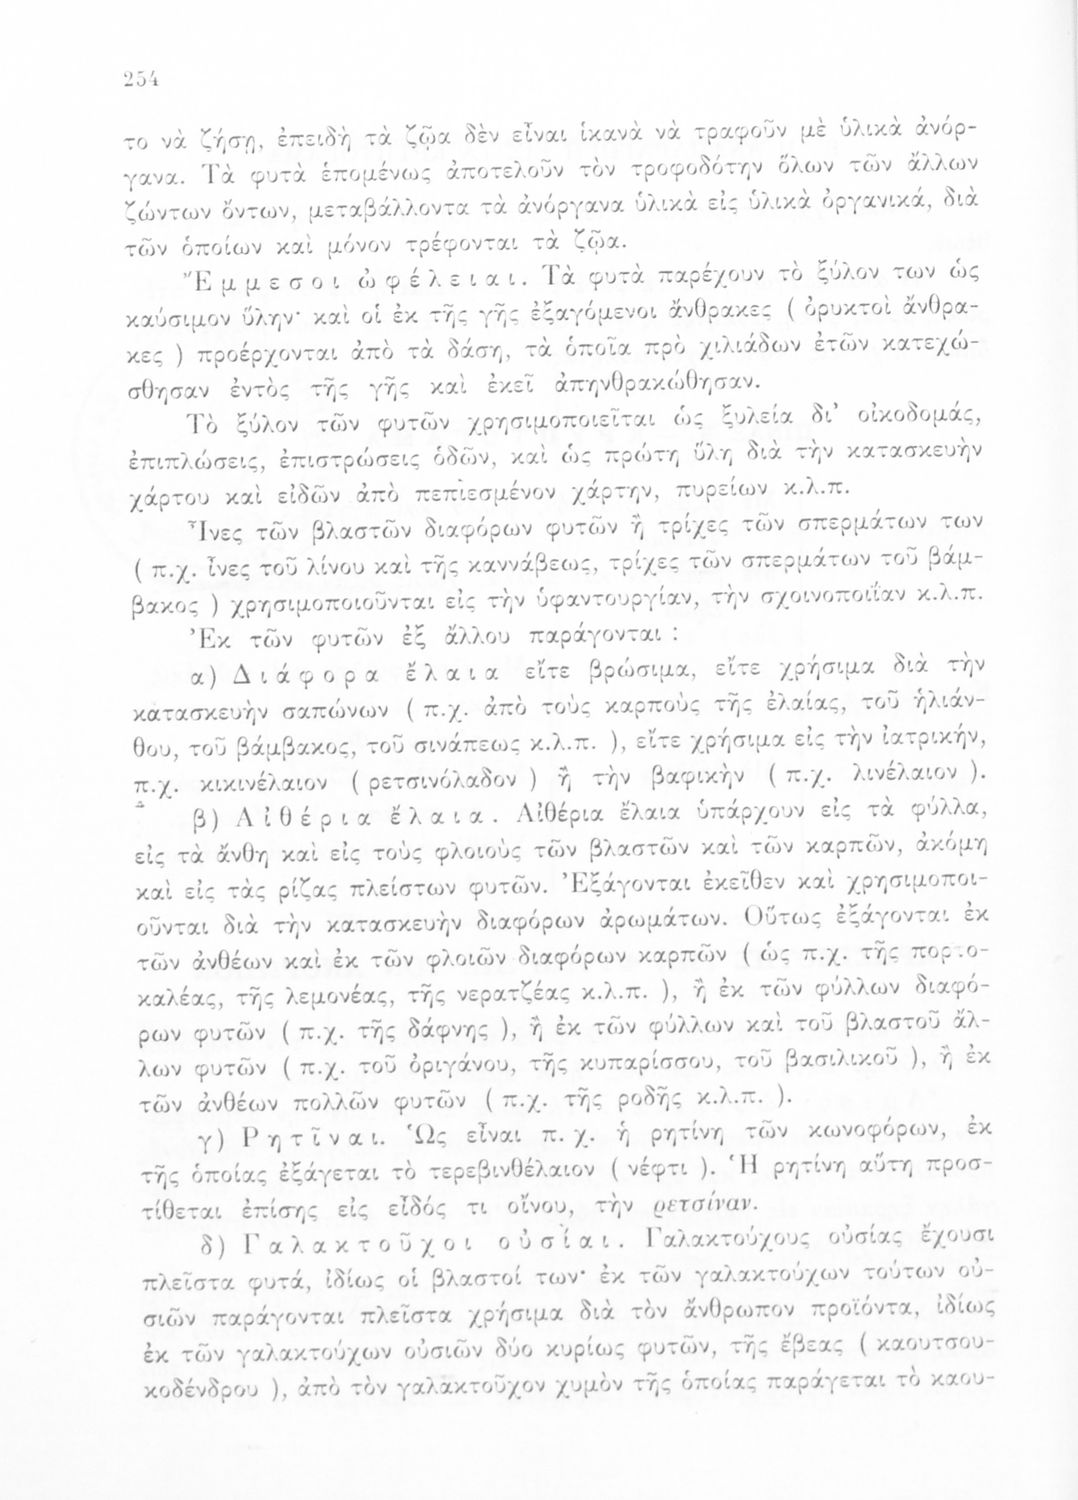 254
το νὰ ζήσῃ, ἐπειδὴ τὰ ζῷα δὲν εἶναι ἱκανὰ νὰ τραφοῦν μὲ ὑλικὰ ἀνόρ-
γανα. Τὰ φυτὰ ἑπομένως ἀποτελοῦν τὸν τροφοδότην ὅλων τῶν ἄλλων
ζώντων ὄντων, μεταβάλλοντα τὰ ἀνόργανα ὑλικὰ εἰς ὑλικὰ ὀργανικά, διὰ
τῶν ὁποίων καὶ μόνον τρέφονται τὰ ζῷα.
Ἔμμεσοι ὠφέλειαι. Τὰ φυτὰ παρέχουν τὸ ξύλον των ὡς
καύσιμον ὕλην· καὶ οἱ ἐκ τῆς γῆς ἐξαγόμενοι ἄνθρακες ( ὀρυκτοὶ ἄνθρα-
κες ) προέρχονται ἀπὸ τὰ δάση, τὰ ὁποῖα πρὸ χιλιάδων ἐτῶν κατεχώ-
σθησαν ἐντὸς τῆς γῆς καὶ ἐκεῖ ἀπηνθρακώθησαν.
Τὸ ξύλον τῶν φυτῶν χρησιμοποιεῖται ὡς ξυλεία δι' οἰκοδομάς,
ἐπιπλώσεις, ἐπιστρώσεις ὁδῶν, καὶ ὡς πρώτη ὕλη διὰ τὴν κατασκευὴν
χάρτου καὶ εἰδῶν ἀπὸ πεπιεσμένον χάρτην, πυρείων κ.λ.π.
Ἶνες τῶν βλαστῶν διαφόρων φυτῶν ἢ τρίχες τῶν σπερμάτων των
( π.χ. ἶνες τοῦ λίνου καὶ τῆς καννάβεως, τρίχες τῶν σπερμάτων τοῦ βάμ-
βακος ) χρησιμοποιοῦνται εἰς τὴν ὑφαντουργίαν, τὴν σχοινοποιΐαν κ.λ.π.
Ἐκ τῶν φυτῶν ἐξ ἄλλου παράγονται :
α) Διάφορα ἔλαια εἴτε βρώσιμα, εἴτε χρήσιμα διὰ τὴν
κατασκευὴν σαπώνων ( π.χ. ἀπὸ τοὺς καρποὺς τῆς ἐλαίας, τοῦ ἡλιάν-
θου, τοῦ βάμβακος, τοῦ σινάπεως κ.λ.π. ), εἴτε χρήσιμα εἰς τὴν ἰατρικήν,
π.χ. κικινέλαιον ( ρετσινόλαδον ) ἢ τὴν βαφικὴν ( π.χ. λινέλαιον ).
β) Αἰθέρια ἔλαια. Αἰθέρια ἔλαια ὑπάρχουν εἰς τὰ φύλλα,
εἰς τὰ ἄνθη καὶ εἰς τοὺς φλοιοὺς τῶν βλαστῶν καὶ τῶν καρπῶν, ἀκόμη
καὶ εἰς τὰς ρίζας πλείστων φυτῶν. Ἐξάγονται ἐκεῖθεν καὶ χρησιμοποι-
οῦνται διὰ τὴν κατασκευὴν διαφόρων ἀρωμάτων. Οὕτως ἐξάγονται ἐκ
τῶν ἀνθέων καὶ ἐκ τῶν φλοιῶν διαφόρων καρπῶν ( ὡς π.χ. τῆς πορτο-
καλέας, τῆς λεμονέας, τῆς νερατζέας κ.λ.π. ), ἢ ἐκ τῶν φύλλων διαφό-
ρων φυτῶν ( π.χ. τῆς δάφνης ), ἢ ἐκ τῶν φύλλων καὶ τοῦ βλαστοῦ ἄλ-
λων φυτῶν ( π.χ. τοῦ ὀριγάνου, τῆς κυπαρίσσου, τοῦ βασιλικοῦ ), ἢ ἐκ
τῶν ἀνθέων πολλῶν φυτῶν ( π.χ. τῆς ροδῆς κ.λ.π. ).
γ) Ρητῖναι. Ὡς εἶναι π. χ. ἡ ρητίνη τῶν κωνοφόρων, ἐκ
τῆς ὁποίας ἐξάγεται τὸ τερεβινθέλαιον ( νέφτι ). Ἡ ρητίνη αὕτη προσ-
τίθεται ἐπίσης εἰς εἶδός τι οἴνου, τὴν ρετσίναν.
δ) Γαλακτοῦχοι οὐσίαι. Γαλακτούχους οὐσίας ἔχουσι
πλεῖστα φυτά, ἰδίως οἱ βλαστοί των· ἐκ τῶν γαλακτούχων τούτων οὐ-
σιῶν παράγονται πλεῖστα χρήσιμα διὰ τὸν ἄνθρωπον προϊόντα, ἰδίως
ἐκ τῶν γαλακτούχων οὐσιῶν δύο κυρίως φυτῶν, τῆς ἑβεας ( καουτσου-
κοδένδρου ), ἀπὸ τὸν γαλακτοῦχον χυμὸν τῆς ὁποίας παράγεται τὸ καου-